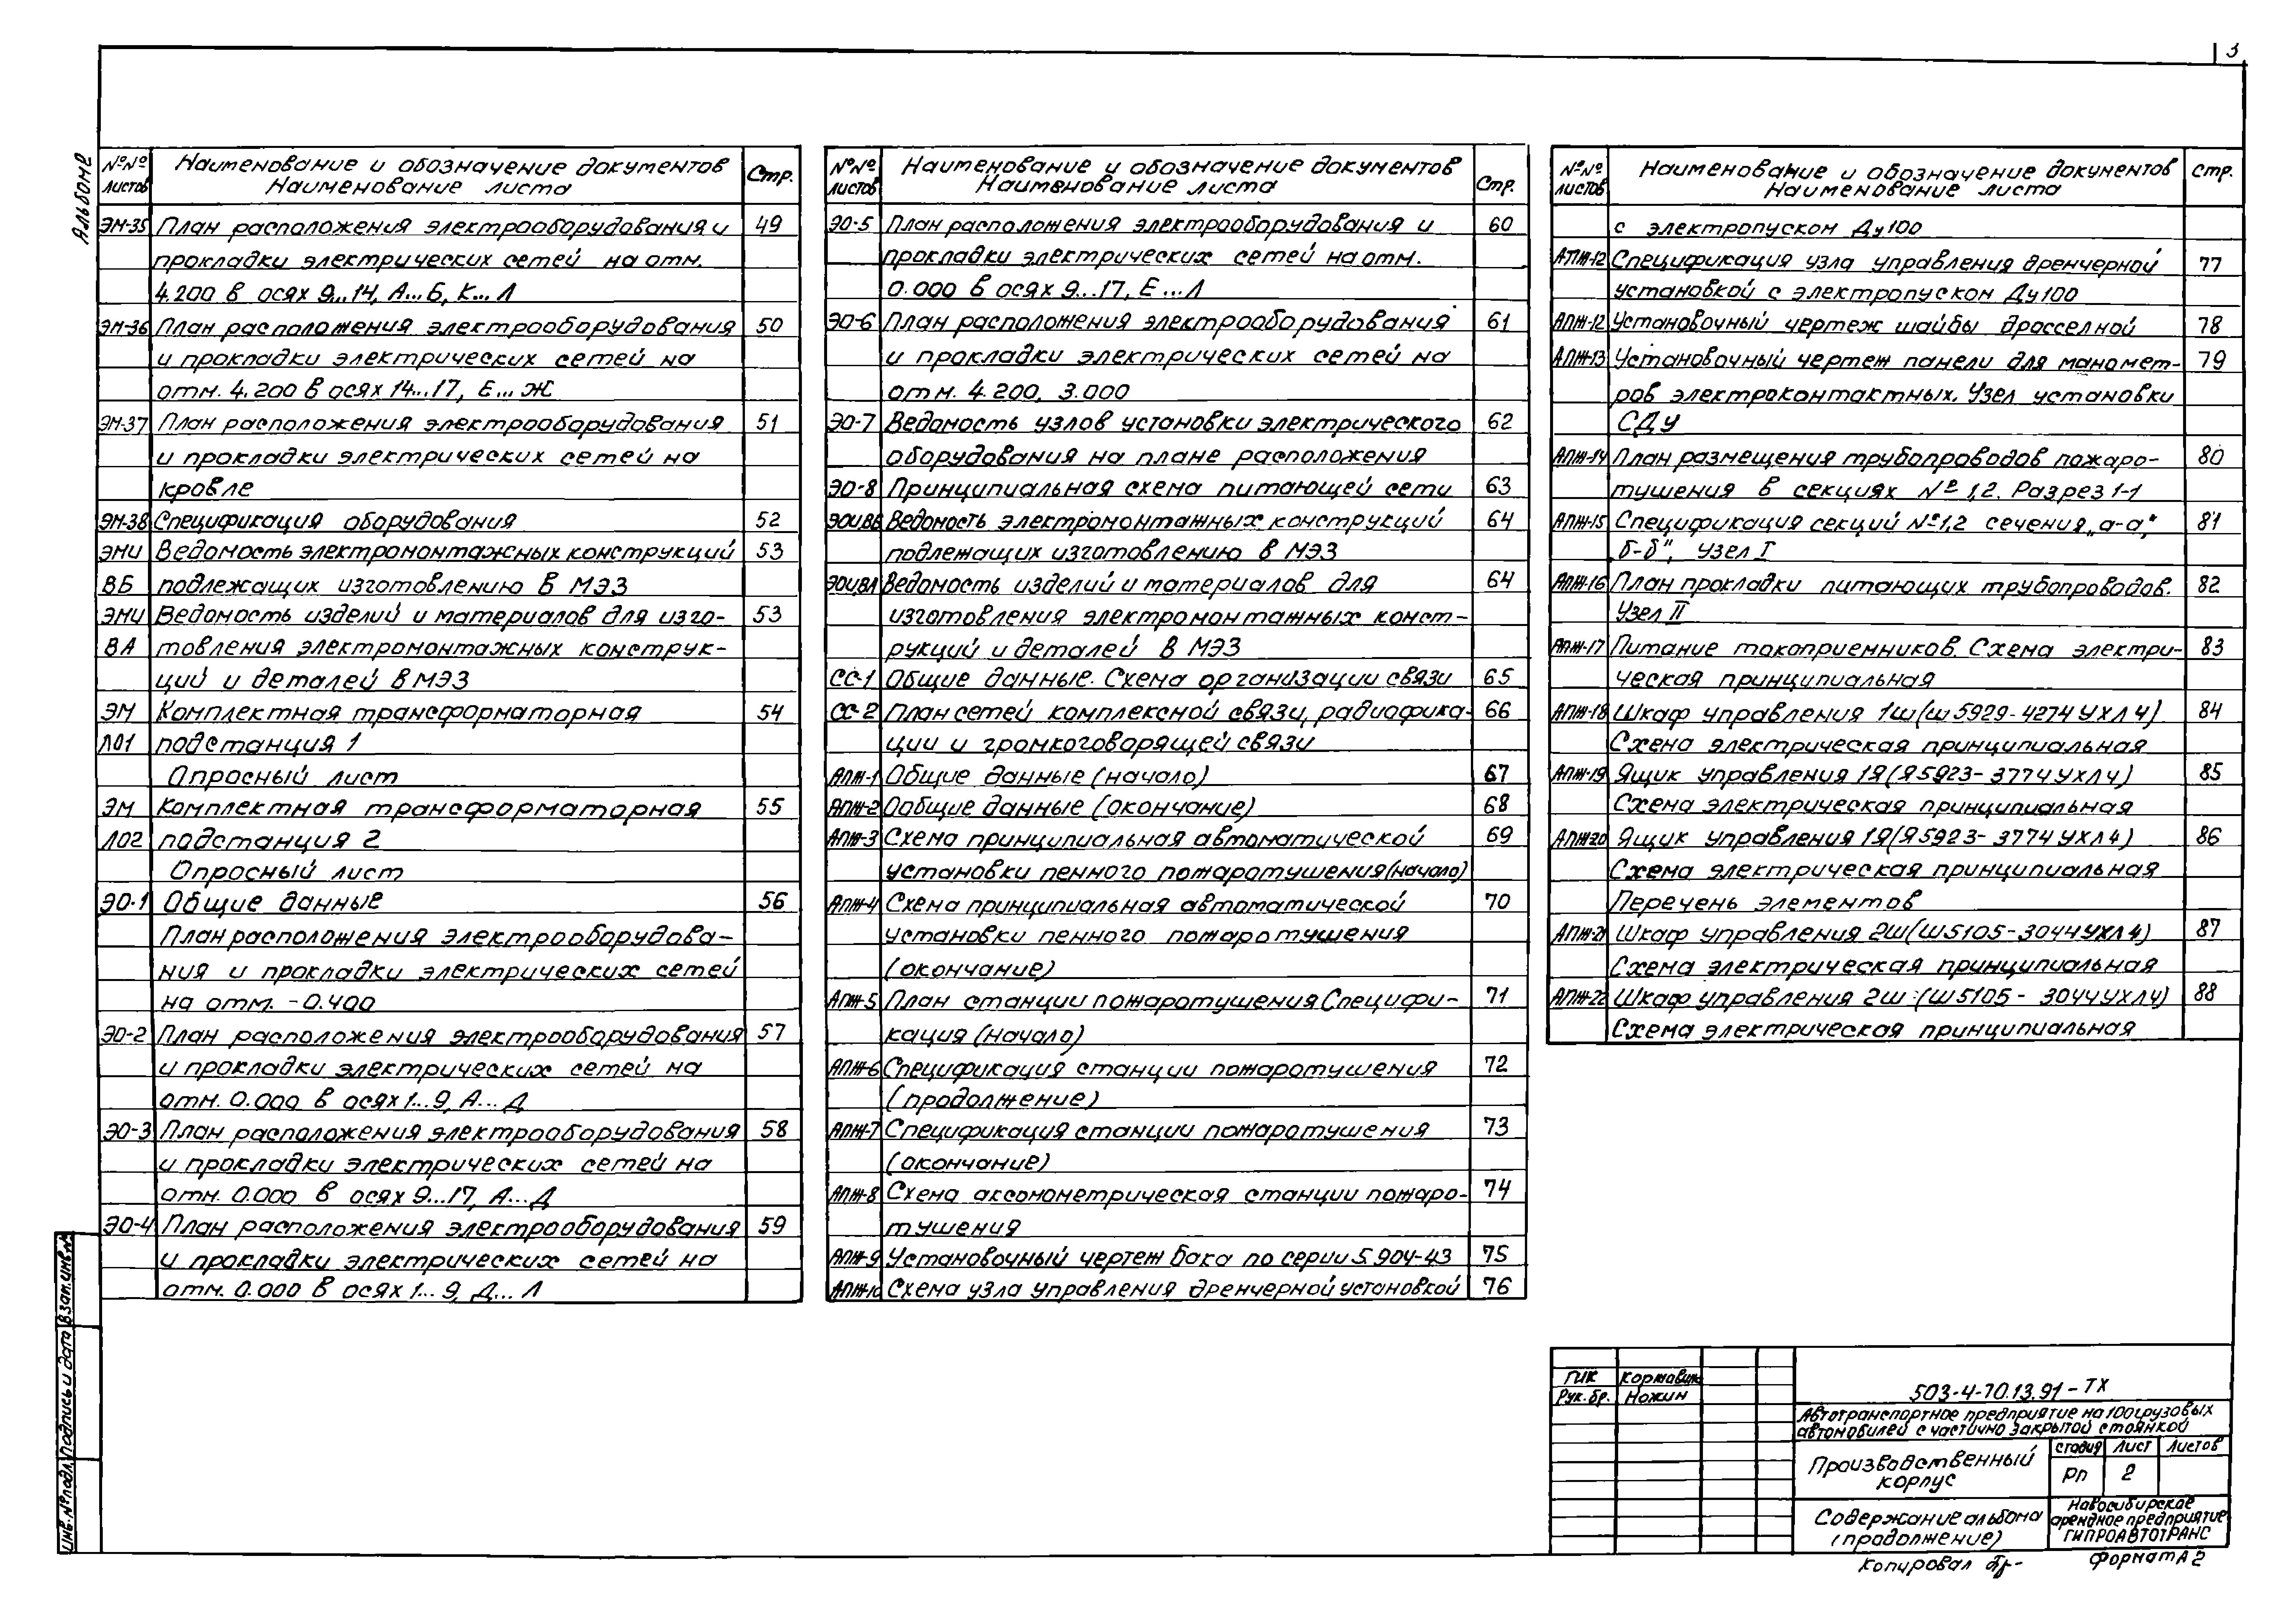 3
Альбом 2
№№ листов Наименование и обозначение документов Наименование листа Стр.
ЭМ-35 План расположения электрооборудования и 49
прокладки электрических сетей на отм.
4.200 в осях 9...14, А...Б, К...Л
ЭМ-36 План расположения электрооборудования 50
и прокладки электрических сетей на
отм. 4.200 в осях 14...17, Е...Ж
ЭМ-37 План расположения электрооборудования 51
и прокладки электрических сетей на
кровле
ЭМ-38 Спецификация оборудования 52
ЭМИ Ведомость электромонтажных конструкций 53
ВБ подлежащих изготовлению в МЭЗ
ЭМИ Ведомость изделий и материалов для изго- 53
ВА товления электромонтажных конструк-
ций и деталей в МЭЗ
ЭМ Комплектная трансформаторная 54
Л01 подстанция 1
Опросный лист
ЭМ Комплектная трансформаторная 55
Л02 подстанция 2
Опросный лист
ЭО-1 Общие данные 56
План расположения электрооборудова-
ния и прокладки электрических сетей
на отм. -0.400
ЭО-2 План расположения электрооборудования 57
и прокладки электрических сетей на
отм. 0.000 в осях 1...9, А...Д
ЭО-3 План расположения электрооборудования 58
и прокладки электрических сетей на
отм. 0.000 в осях 9...17, А...Д
ЭО-4 План расположения электрооборудования 59
и прокладки электрических сетей на
отм. 0.000 в осях 1...9, Д...Л
№№ листов Наименование и обозначение документов Наименование листа Стр.
ЭО-5 План расположения электрооборудования и 60
прокладки электрических сетей на отм.
0.000 в осях 9...17, Е...Л
ЭО-6 План расположения электрооборудования 61
и прокладки электрических сетей на
отм. 4.200, 3.000
ЭО-7 Ведомость узлов установки электрического 62
оборудования на плане расположения
ЭО-8 Принципиальная схема питающей сети 63
ЭОИ.ВБ Ведомость электромонтажных конструкций 64
подлежащих изготовлению в МЭЗ
ЭОИ.ВА Ведомость изделий и материалов для 64
изготовления электромонтажных конст-
рукций и деталей в МЭЗ
СС-1 Общие данные. Схема организации связи 65
СС-2 План сетей комплексной связи, радиофика- 66
ции и громкоговорящей связи
АПЖ-1 Общие данные (начало) 67
АПЖ-2 Ообщие данные (окончание) 68
АПЖ-3 Схема принципиальная автоматической 69
установки пенного пожаротушения (начало)
АПЖ-4 Схема принципиальная автоматической 70
установки пенного пожаротушения
(окончание)
АПЖ-5 План станции пожаротушения Специфи- 71
кация (начало)
АПЖ-6 Спецификация станции пожаротушения 72
(продолжение)
АПЖ-7 Спецификация станции пожаротушения 73
(окончание)
АПЖ-8 Схема аксонометрическая станции пожаро- 74
тушения
АПЖ-9 Установочный чертеж бака по серии 5.904-43 75
АПЖ-10 Схема узла управления дренчерной установкой 76
№№ листов Наименование и обозначение документов Наименование листа Стр.
с электропуском Ду100
АПЖ-12 Спецификация узла управления дренчерной 77
установкой с электропуском Ду100
АПЖ-12 Установочный чертеж шайбы дросселной 78
АПЖ-13 Установочный чертеж панели для маномет- 79
ров электроконтактных. Узел установки
СДУ
АПЖ-14 План размещения трубопроводов пожаро- 80
тушения в секциях №1,2. Разрез 1-1
АПЖ-15 Спецификация секций №1,2 сечения „а-а"; 81
„б-б", Узел I
АПЖ-16 План прокладки питающих трубопроводов. 82
Узел II
АПЖ-17 Питание токоприемников. Схема электри- 83
ческая принципиальная
АПЖ-18 Шкаф управления 1Ш (Ш5929-4274 УХЛ4) 84
Схема электрическая принципиальная
АПЖ-19 Ящик управления 1Я (Я5923-3774 УХЛ4) 85
Схема электрическая принципиальная
АПЖ-20 Ящик управления 1Я (Я5923-3774 УХЛ4) 86
Схема электрическая принципиальная
Перечень элементов
АПЖ-21 Шкаф управления 2Ш (Ш5105-3044 УХЛ4) 87
Схема электрическая принципиальная
АПЖ-22 Шкаф управления 2Ш (Ш5105-3044 УХЛ4) 88
Схема электрическая принципиальная
Инв. № подл. Подпись и дата Взам. инв. №
ГИП
Рук. бр. Ножин
503-4-70.13.91-ТХ
Автотранспортное предприятие на 100 грузовых
автомобилей с частично закрытой стоянкой
Производственный
корпус
Стадия Лист Листов
РП 2
Содержание альбома
(продолжение)
Новосибирское
арендное предприятие
ГИПРОАВТОТРАНС
Копировал
Формат А2